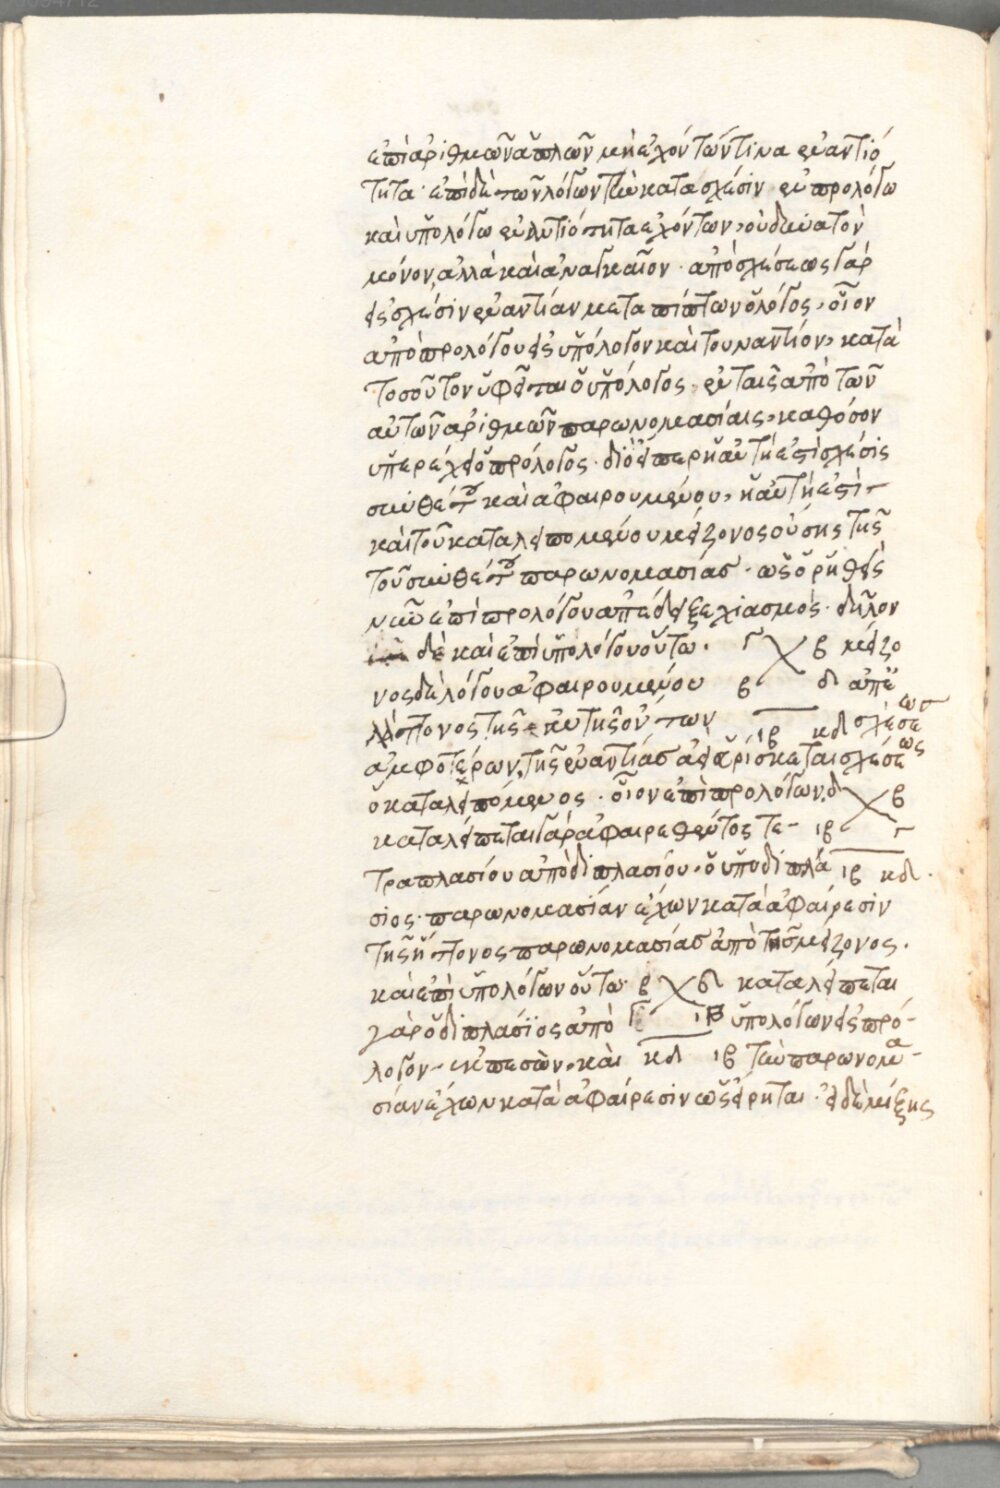 ἐπὶ ἀριθμῶν ἁπλῶν μὴ ἐχόντων τινα ἐναντιό
τητα· ἐπὶ δὲ τῶν λόγων τὴν κατὰ σχέσιν ἐν προλόγω
καὶ ὑπολόγω ἐναντιότητα ἐχόντων, οὐ δυνατὸν
μόνον, ἀλλὰ καὶ ἀναγκαῖον· ἀπὸ σχέσεως γὰρ
εἰς σχέσιν ἐναντίαν μεταπίπτων ὁ λόγος, οἷον
ἀπὸ προλόγου εἰς ὑπόλογον καὶ τουναντίον, κατὰ
τοσοῦτον ὑφεῖται ὁ ὑπόλογος, ἐν ταῖς ἀπὸ τῶν
αὐτῶν ἀριθμῶν παρωνομασίαις, καθόσον
ὑπερέχει ὁ πρόλογος· διὸ εἴπερ ἡ αὐτή ἐστι σχέσις
συνθέτου καὶ ἀφαιρουμένου, ἡ αὐτή ἐστι
καὶ τοῦ καταλειπομένου μείζονος οὔσης τῆς
τοῦ συνθέτου παρωνομασίας· ὡς ὁ ῥηθεὶς
νῦν ἐπὶ προλόγου ἀπέδειξε χιασμός· δῆλον
δὲ καὶ ἐπὶ ὑπολόγου οὕτω. γ β μείζο
νος δὲ λόγου ἀφαιρουμένου β δ ἀπὸ
ἐλάττονος τῆς αὐτῆς ὄντων ιβ κδ σχέσεως
ἀμφοτέρων, τῆς ἐναντίας εὑρίσκεται σχέσεως
ὁ καταλειπόμενος· οἷον ἐπὶ προλόγων, δ β
καταλείπεται γὰρ ἀφαιρεθέντος τε ιβ γ
τραπλασίου ἀπὸ διπλασίου, ὁ ὑποδιπλά ιβ κδ.
σιος· παρωνομασίαν ἔχων κατὰ ἀφαίρεσιν
τῆς ἥττονος παρωνομασίας ἀπὸ τῆς μείζονος.
καὶ ἐπὶ ὑπολόγων οὕτω· β δ καταλείπεται
γὰρ ὁ διπλάσιος ἀπὸ γ ιβ ὑπολόγων εἰς πρό
λογον μεταπεσὼν, καὶ κδ ιβ τὴν παρωνομα
σίαν ἔχων κατὰ ἀφαίρεσιν ὡς εἴρηται· εἰ δὲ μίξης